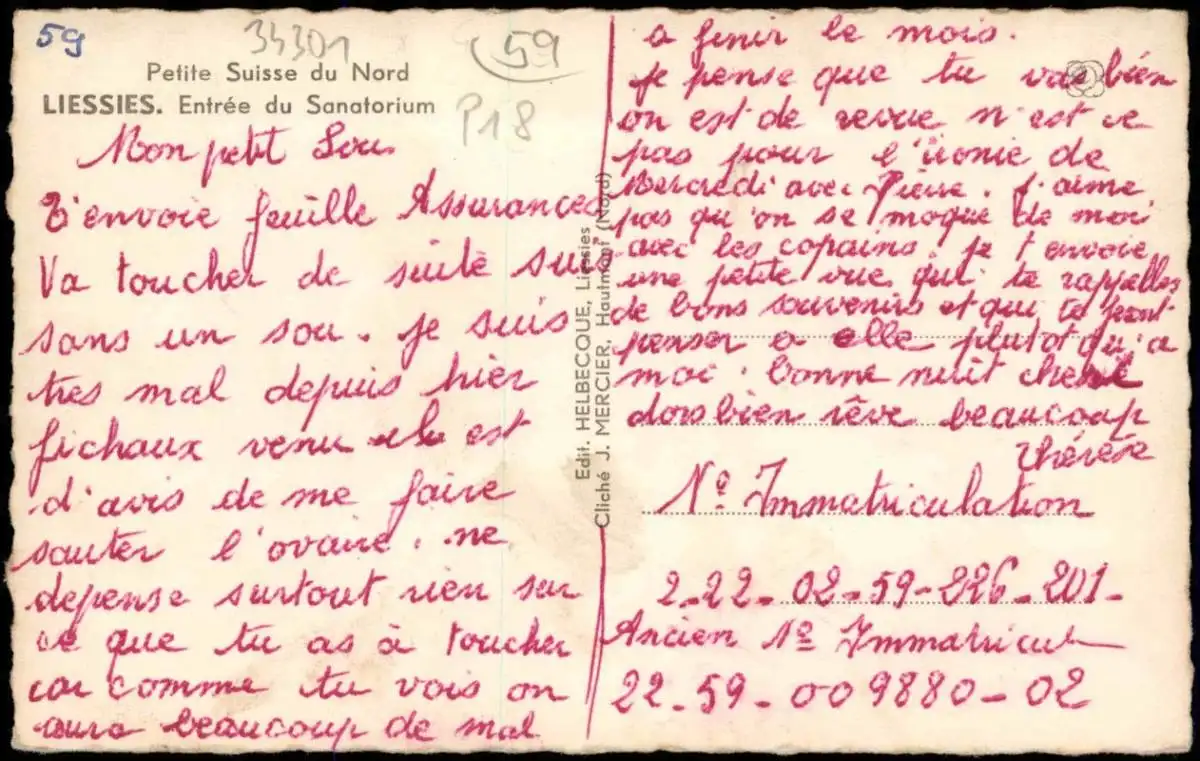 59
34301
59
P18
Petite Suisse du Nord
LIESSIES. Entrée du Sanatorium
Mon petit Lou.
T'envoie feuille Assurances
Va toucher de suite suis
sans un sou. je suis
tres mal depuis hier
fichaux venu est
d'avis de me faire
sauter l'ovaire. ne
depense surtout rien sur
ce que tu as à toucher
car comme tu vois on
aura beaucoup de mal
Edit. HELBECQUE, Liessies
Cliché J. MERCIER, Hautmont (Nord)
a finir le mois.
je pense que tu vas bien
on est de revue n'est ce
pas pour l'ironie de
Mercredi avec Pierre. J'aime
pas qu'on se moque de moi
avec les copains. je t'envoie
une petite vue qui te rappelles
de bons souvenirs et qui te feront
penser a elle plutot qu'a
moi. bonne nuit cheri
dors bien rêve beaucoup
Thérèse
N° Immatriculation
2-22-02-59-226-201-
Ancien N° Immatricul
22-59-009880-02